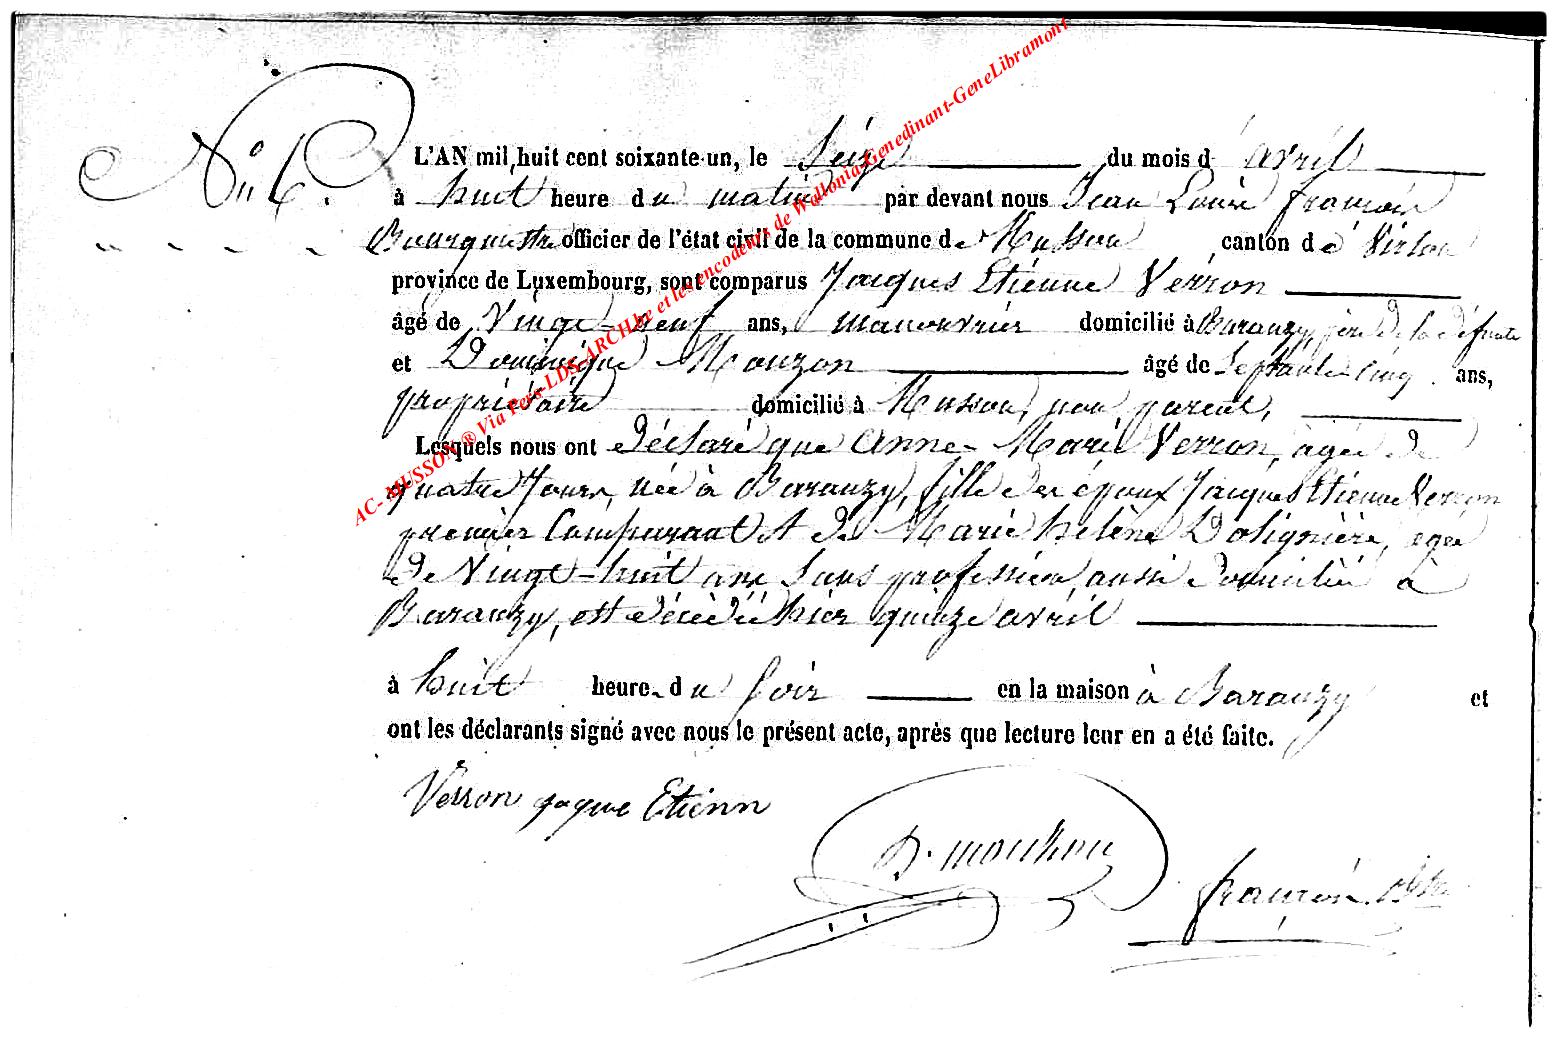 N° 6.
L'AN mil huit cent soixante-un, le Seize du mois d'avril
à huit heure du matin par devant nous Jean Louis françois
Bourguette officier de l'état civil de la commune de Musson canton de Virton
province de Luxembourg, sont comparus Jacques Etienne Verron
âgé de Vingt-neuf ans, manouvrier domicilié à Baranzy, père de la défunte
et Dominique Mouzon âgé de Septante cinq ans,
propriétaire domicilié à Musson, non parent,
Lesquels nous ont déclaré que Anne-Marie Verron, agée de
quatre Jours, née à Baranzy, fille des époux Jacques Etienne Verron
premier Comparant et de Marie hélène Dolignière, agée
de Vingt-huit ans Sans profession, aussi domiciliée à
Baranzy, est décédée hier quinze avril
à huit heure du soir en la maison à Baranzy et
ont les déclarants signé avec nous le présent acte, après que lecture leur en a été faite.
Verron jaque Etienn
D. mouzon
françois
AC-MUSSON ® Via Fers-LDS-ARCH.be et les encodeurs de Wallonia-Genedinant-GeneLibramont